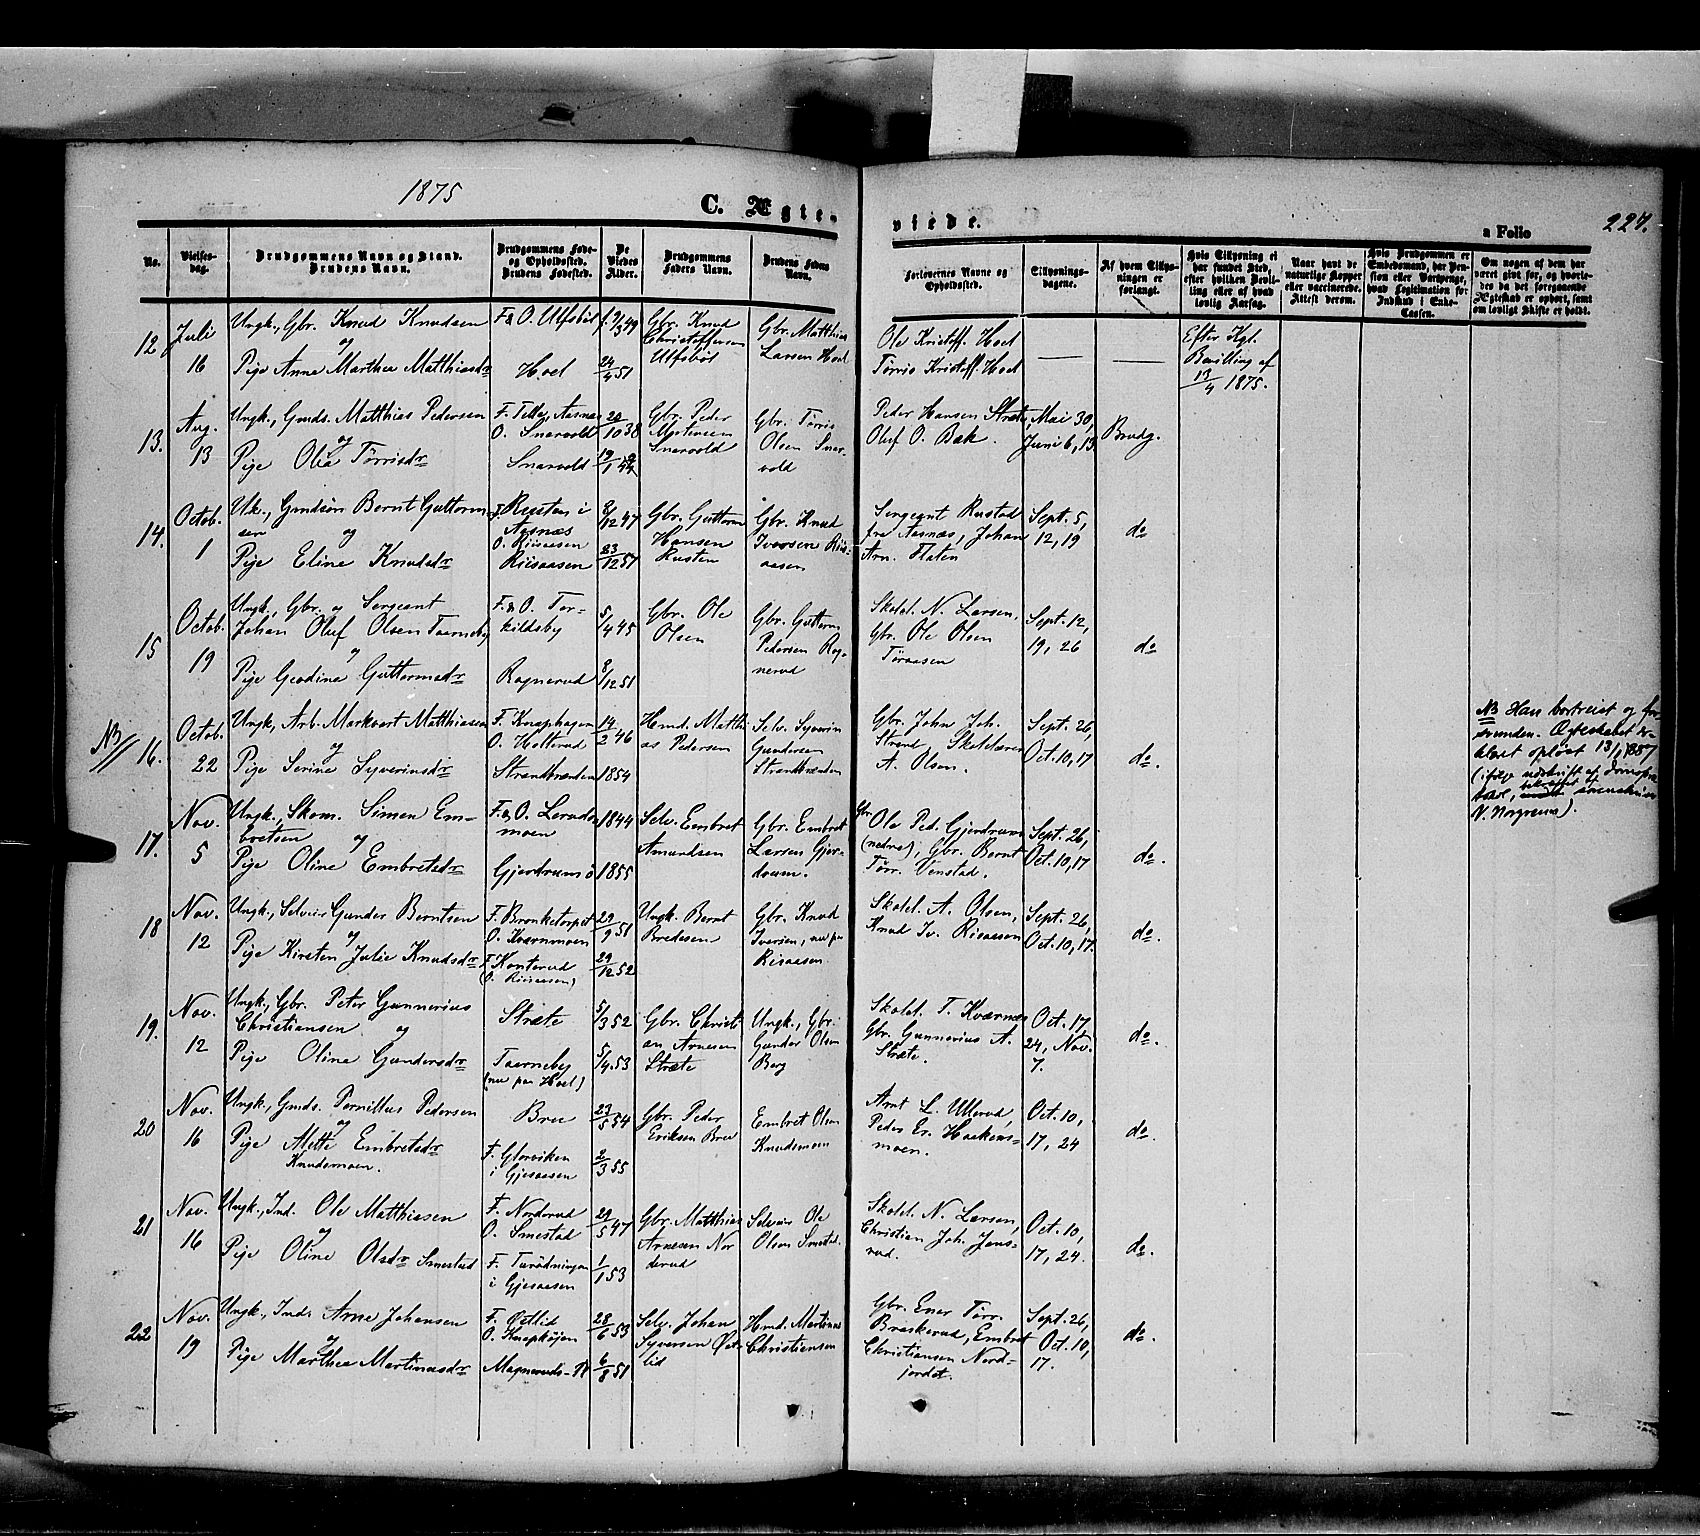 1875
C. Ægte-
viede.
a Folio
227.
No.
Vielses-
dag.
Brudgommens Navn og Stand.
Brudens Navn.
Brudgommens Føde-
og Opholdssted.
Brudens Fødested.
De
Viedes
Alder.
Brudgommens
Faders Navn.
Brudens Faders
Navn.
Forlovernes Navne og
Opholdssted.
Tillysnings-
dagene.
Af hvem Tillys-
ningen er
forlangt.
Hvis Tillysning ei
har fundet Sted,
efter hvilken Bevil-
ling eller af hvad
lovlig Aarsag.
Naar havt de
naturlige Kopper
eller vaccinerede.
Attest derom.
Hvis Brudgommen er
Embedsmand, har Pen-
sion eller Vartpenge,
hvad Legitimation for
Indskud i Enke-
Cassen.
Om nogen af dem har
været gift før, og hvorle-
des da det foregaaende
Ægteskab er ophørt, samt
om lovligt Skifte er holdt.
12
Juli
16
Ungk., Gbr. Knud Knudsen
og
Pige Anne Marthea Matthiasdr
F. & O. Ulfsbøl
Hoel
f. 9/3 49
24/4 51
Gbr. Knud
Christoffersen
Ulfsbøl
Gbr. Matthias
Larsen Hoel
Ole Kristoff. Hoel
Tørris Kristoff. Hoel
Efter Kgl.
Bevilling af
13/4 1875.
13.
Aug.
13
Ungk., Gmds. Matthias Pedersen
og
Pige Olia Tørrisdr
F. Aasnæs
O. Snarvold
Snarvold
28/10 38
19/1
Gbr. Peder
Mortensen
Snarvold
Gbr. Tørris
Olsen Snar-
vold
Peder Hansen Stræte,
Oluf O. Bak.
Mai 30,
Juni 6, 13
Brudg.
14.
Octob.
1
Uk., Gmdsøn Bernt Guttorm-
sen og
Pige Eline Knudsdr
F. Rusten i
Aasnæs
O. Riisaasen
Riisaasen
8/12 47
23/12 57
Gbr. Guttorm
Hansen
Rusten
Gbr. Knud
Iversen Riis-
aasen
Sergeant Rustad
fra Aasnæs, Johan
Arn. Flaten
Sept. 5,
12, 19
do
15
Octob.
19
Ungk., Gbr. og Sergeant
Johan Oluf Olsen Taarneby
og
Pige Geodine Guttormsdr
F. & O. Tor-
kildsby
Rognerud
5/4 45
8/12 51
Gbr. Ole
Olsen
Gbr. Guttorm
Pedersen Rog-
nerud
Skolel. N. Larsen,
Gbr. Ole Olsen
Tøraasen
Sept. 12,
19, 26
do
NB
16.
Octob.
22
Ungk., Arb. Markvart Matthiasen
og
Pige Serine Syverinsdr
F. Knaphagen
O. Holterud
Strandbrænden
14/2 46
1854
Hmd. Matthi
as Pedersen
Selv. Syverin
Gundersen
Strandbrænden
Gbr. John Joh.
Strand, Skolelærer
A. Olsen.
Sept. 26,
Oct. 10, 17
do.
NB Han bortreist og for-
svunden. Ægteskabet er-
klæret opløst 13/1 1887
(ifølge udskrift af
N. Norgrens).
17.
Nov.
5
Ungk., Skom. Simen Em-
bretsen og
Pige Oline Embretsdr
F. & O. Lerud-
moen
Gjerdrum ø
1844
1855
Selv. Embret
Amundsen
Gbr. Embret
Larsen Gjer-
drum.
Gbr.
Ole Ped. Gjerdrum
(nedre), Gbr. Bernt
Tørr. Venstad.
Sept. 26,
Oct. 10, 17
do.
18
Nov.
12
Ungk., Selveier Gunder Berntsen
og
Pige Kirsten Julie Knudsdr
F. Bronketorpet
O. Kværnmoen
F. Konterud
(O. Riisaasen)
29/9 51
29/12 52
Ungk. Bernt
Bredesen
Gbr. Knud
Iversen, nu paa
Risaasen
Skolel. A. Olsen,
Knud Iv. Risaasen
Sept. 26,
Oct. 10, 17.
do.
19.
Nov.
12
Ungk., Gbr. Peter Gunnerius
Christiansen og
Pige Oline Gundersdr
Stræte
Taarneby
(nu paa Hoel)
5/3 52
5/4 53
Gbr. Christi
an Arnesen
Stræte
Ungk., Gbr.
Gunder Olsen
Berg
Skolel. T. Kværnæs
Gbr. Gunnerius A.
Stræte.
Oct. 17
24, Nov.
7.
do.
20
Nov.
16
Ungk., Gmds. Pernillus Pedersen
og
Pige Mette Embretsdr
Knudsmoen.
Brue
F. Glorviken
i Gjesaasen
23/5 54
2/3 55
Gbr. Peder
Eriksen Brue
Embret Olsen
Knudsmoen
Arnt L. Ullerud,
Peder Er. Haakens-
moen.
Oct. 10,
17, 24
do.
21
Nov.
16
Ungk., Ind. Ole Matthiasen
og
Pige Oline Olsdr Smestad
F. Norderud
O. Smestad
F. Turødningen
i Gjesaasen
29/5 47
1/1 53
Gbr. Matthias
Arnesen Nor
derud
Selveier Ole
Olsen Smestad.
Skolel. N. Larsen,
Christian Joh. Jens-
rud.
Oct. 10,
17, 24.
do.
22
Nov.
19
Ungk., Ind. Arne Johansen
og
Pige Marthea Martinusdr
F. Østlid
O. Knapkøjen
Magneruds-
28/6 53
6/8 51
Selv. Johan
Syversen Øst-
lid
Hmd. Martinus
Christiansen
Gbr. Ener Tørr.
Braskerud, Embret
Christiansen Nord-
jordet.
Sept. 26,
Oct. 10,
17.
do.